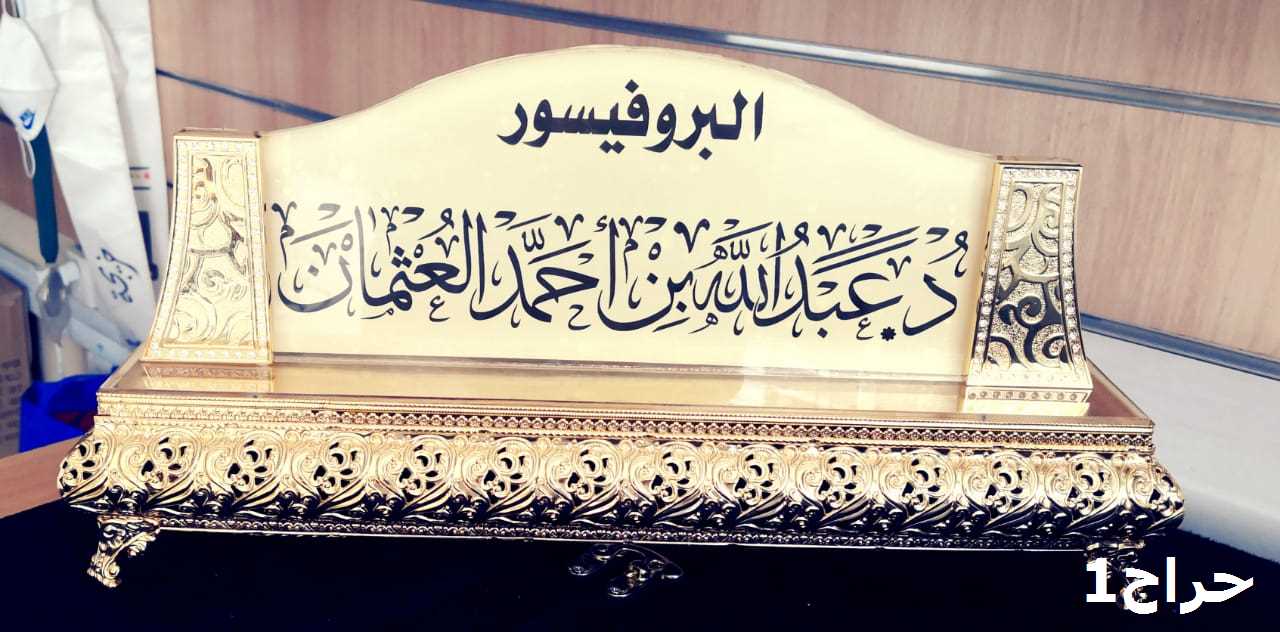 البروفيسور
دُ.عَبَدُاللَّهُ بِنِ أَحمَدَّ العُثمَانَ
حراج1